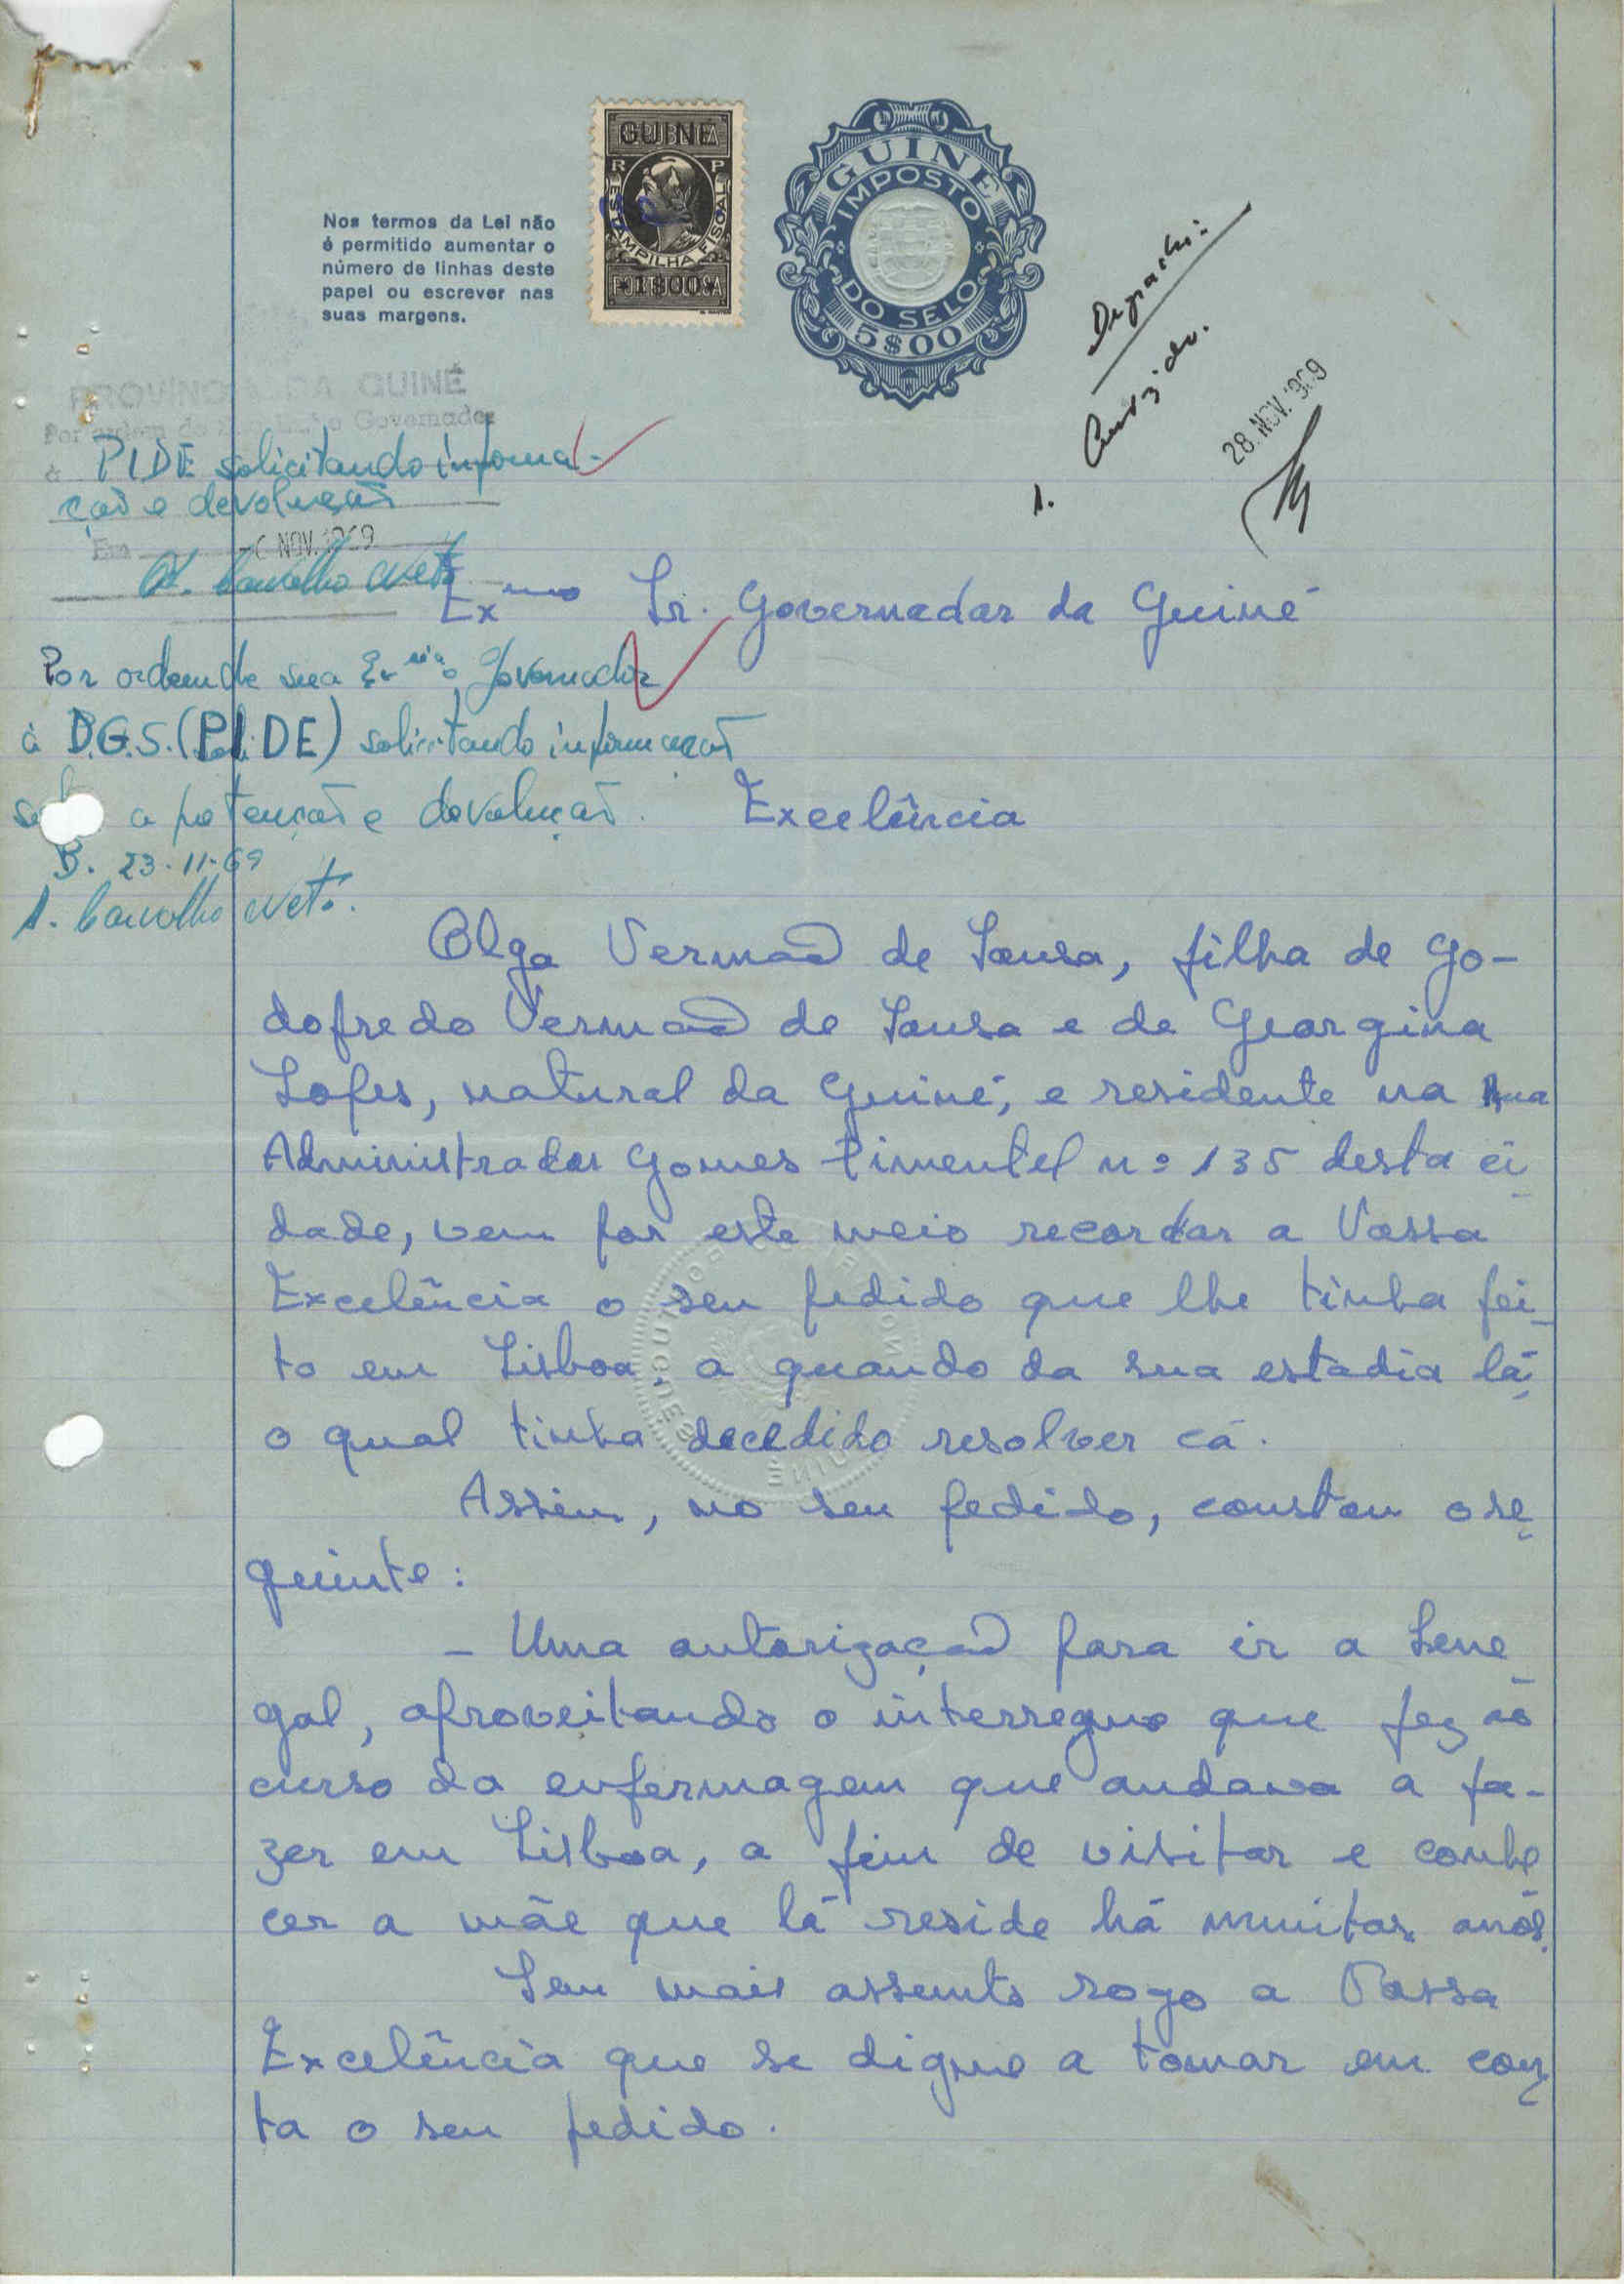 GUINÉ
R P
ESTAMPILHA FISCAL
1$00
GUINÉ
IMPOSTO
DO SELO
5$00
Nos termos da Lei não
é permitido aumentar o
número de linhas deste
papel ou escrever nas
suas margens.
Despacho:
1. Autorizado.
28. NOV. 1969
PROVINCIA DA GUINÉ
Por ordem de Governador
à PIDE solicitando informa-
ção e devolução
Em NOV. 1969
A. Carvalho Neto
Exmo Sr. Governador da Guiné
Por ordem de sua Exia o Governador
à D.G.S. (PIDE) solicitando informação
a petenção e devolução.
B. 23-11-69
A. Carvalho Neto.
Excelência
Olga Vermão de Sousa, filha de Go-
dofredo Vermão de Sousa e de Georgina
Lopes, natural da Guiné, e residente na Rua
Administrador Gomes Pimentel nº 135 desta ci
dade, vem por este meio recordar a Vossa
Excelência o seu pedido que lhe tinha fei-
to em Lisboa, a quando da sua estadia lá,
o qual tinha decedido resolver cá.
Assim, no seu pedido, constou o se
guinte:
- Uma autorização para ir a Sene
gal, aproveitando o interregno que fez ao
curso da enfermagem que andava a fa-
zer em Lisboa, a fim de visitar e conhe
cer a mãe que lá reside há muitos anos.
Sem mais assunto rogo a Vossa
Excelência que se digne a tomar em con
ta o seu pedido.